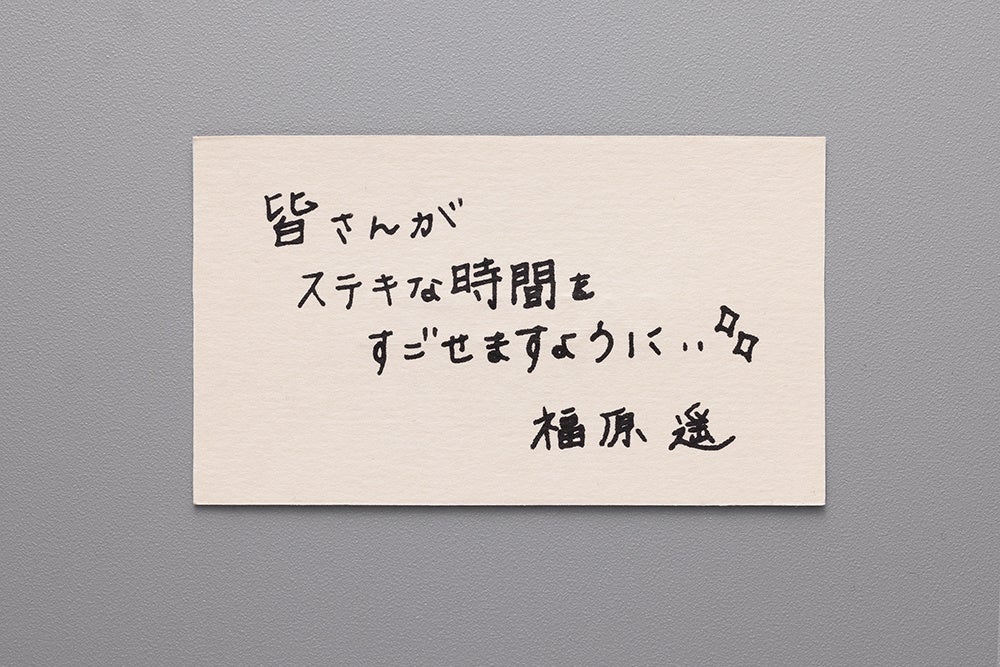 皆さんが
ステキな時間を
すごせますように..
福原 遥